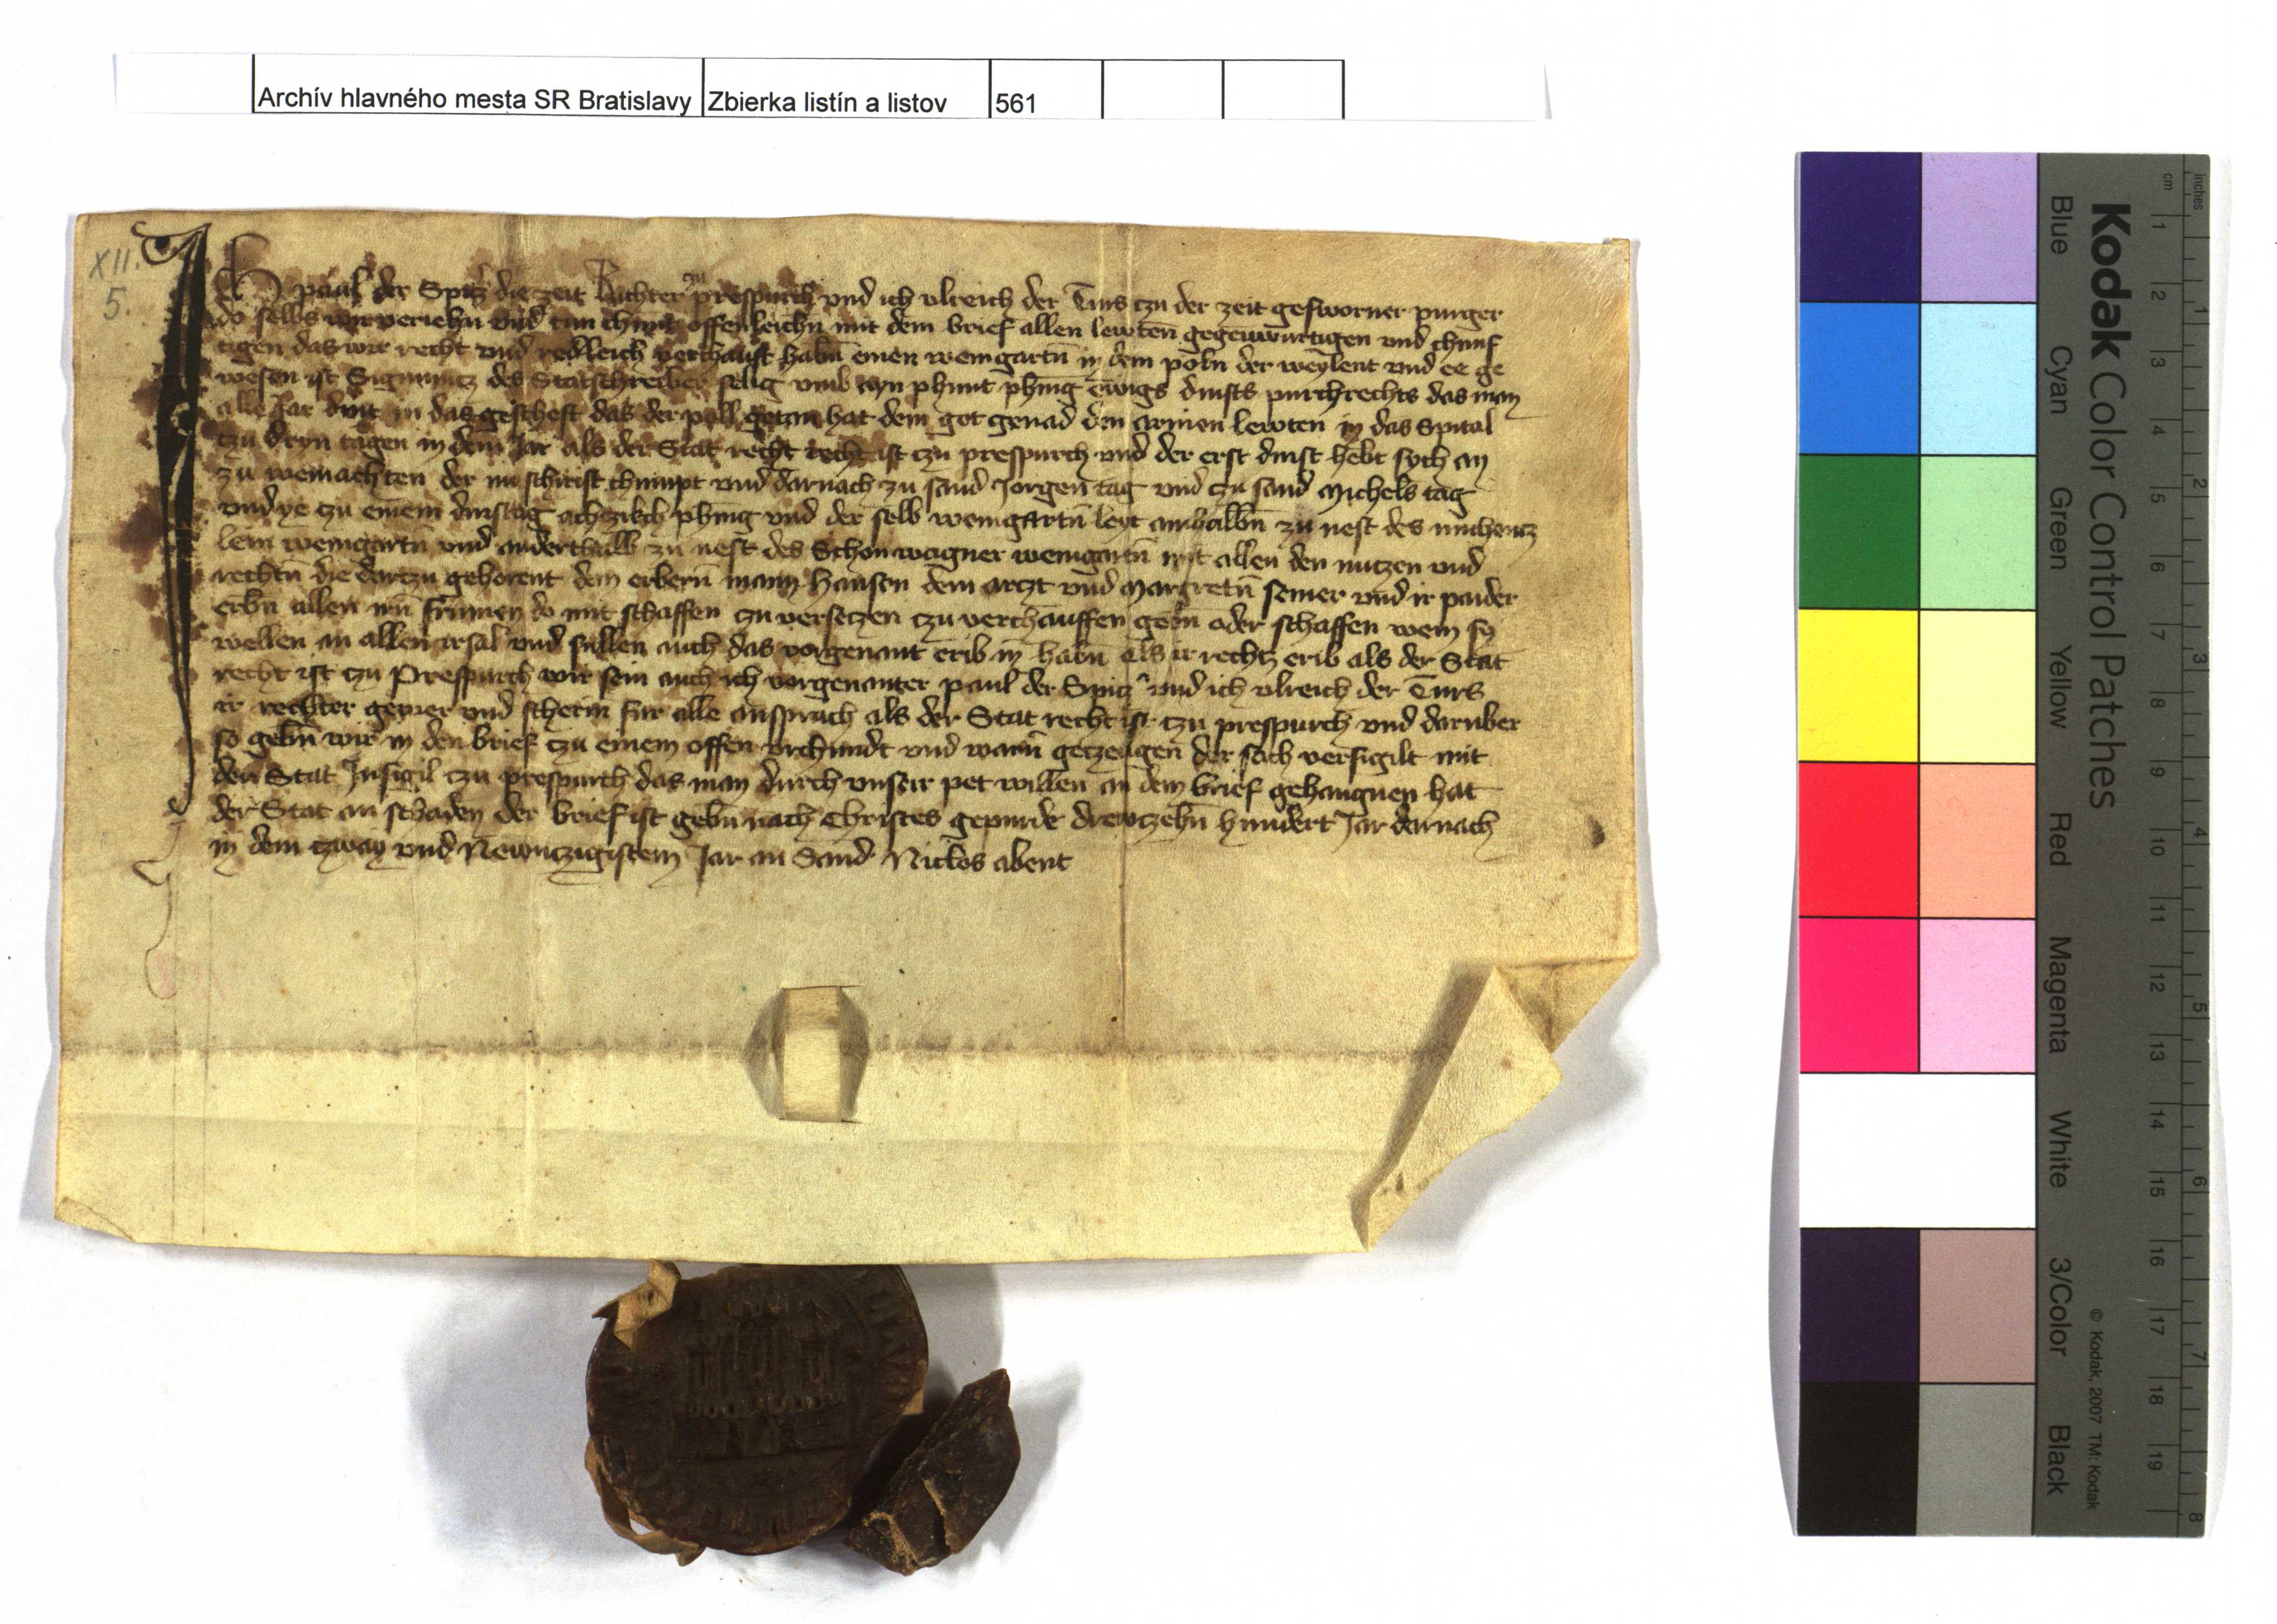 Archív hlavného mesta SR Bratislavy Zbierka listín a listov 561
XII.
5.
Ich paul der Spicz die zeit Richter zu prespurch vnd ich vlreich der Türs czu der zeit gesworner purger
do selbs wir veriehn vnd tun chunt offenleichn mit dem brief allen lewten gegenwurtigen vnd chunf
tigen das wir recht vnd redleich verchauft habn einen weingartn in dem poln der weylent vnd ee ge
wesen ist Sigmuncz des Statschreiber selig vmb ayn phunt phnig ewigs dinsts purchrechts das man
alle Jar dint in das gescheft das der poll getan hat dem got genad den armen lewten in das Spital
tzu dryn tagen in dem Jar als der Stat recht recht ist czu prespurch vnd der erst dinst hebt sych an
zu weinachten der nu schirist chumpt vnd darnach zu sand Jorgen tag vnd zu sand Michels tag
vnd ye czu einem dinstag achczikch phnig vnd der selb weingartn leyt ainhalbn zu nest des
lein weingartn vnd anderthalb zu nest des Schonwagner weingartn mit allen den nutzen vnd
rechtn die darczu gehorent dem erbern mann Hansen dem arczt vnd Margretn seiner vnd ir paider
erbn allen irn frumen do mit schaffen czu versetzen czu verchauffen gebn oder schaffen wem sy
wellen an allen irsal vnd sullen auch das vorgenant erib in habn als ir rechtz erib als der Stat
recht ist czu Prespurch wir sein auch ich vorgenanter paul der Spicz vnd ich vlreich der Türs
ir rechter gewer vnd scherm fur alle ansprach als der Stat recht ist czu prespurch vnd daruber
so gebn wir in den brief czu einem offen vrchundt vnd warn geczeugen der sach versigilt mit
der Stat Jnsigil czu prespurch das man durch vnser pet willen an dem brief gehangen hat
der Stat an schaden der brief ist gebn nach Christes gepurde drewczehn hundert Jar darnach
in dem czway vnd Newnczigistem Jar an Sand Niclos abent
Kodak Color Control Patches
Blue Cyan Green Yellow Red Magenta White 3/Color Black
© Kodak, 2007 TM: Kodak
inches 1 2 3 4 5 6 7 8
cm 1 2 3 4 5 6 7 8 9 10 11 12 13 14 15 16 17 18 19